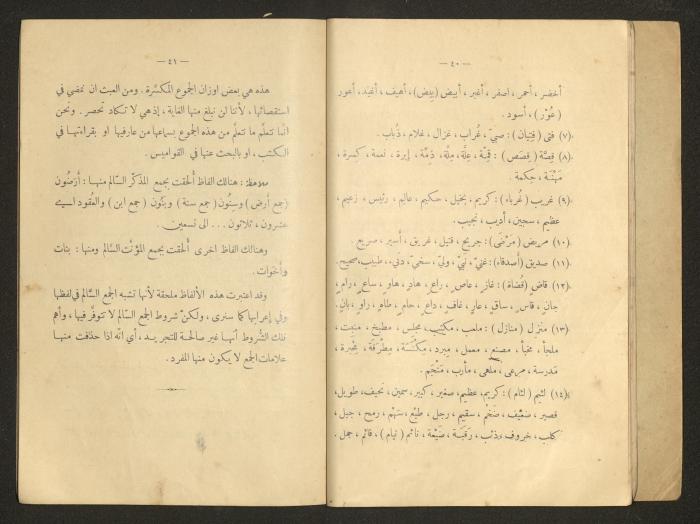 — ٤٠ —
أخضر ، أحمر ، اصفر ، أغبر ، أبيض (بيض) ، أهيف ، أغيد ، أعور
(عُوْر) ، أسود .
(٧) فتى (فتيان) : صبيّ ، غُراب ، غزال ، غلام ، ذُباب .
(٨) قِصَّة (قِصَص) : قِمَّة ، عِلَّة، مِلَّة، ذِمَّة ، إبرة ، نعمة ، كِسرة ،
مَهْنَة ، حِكمة .
(٩) غريب (غُرباء) : كريم ، بخيل ، حكيم ، عالِم ، رئيس ، زعيم ،
عظيم ، سجين ، أديب ، نجيب .
(١٠) مريض (مَرْضَى) : جريح ، قتيل ، غريق ، أسير ، صريع .
(١١) صديق (أصدقاء) : غنيّ ، نبيّ ، وليّ ، سخيّ ، دنيّ ، طبيب، صحيح.
(١٢) قاضٍ (قضاة) : غازٍ ، عاصٍ ، راعٍ ، هادٍ ، هاوٍ ، ساعٍ ، رامٍ ،
جانٍ، قاسٍ ، ساقٍ ، عارٍ ، غافٍ ، داعٍ ، حامٍ ، طاهٍ ، راوٍ ، بانٍ .
(١٣) منزل (منازل) : ملعب ، مكتب ، مجلس ، مطبخ ، منبت ،
ملجأ ، مخبأ ، مصنع ، معمل ، مبرد ، مِكنَسَة ، مِطْرَقَة ، مِحْبرة ،
مَدرسة ، مرعى ، ملهى ، مأرب ،
(١٤) لئيم (لئام) : كريم ، عظيم، صغير ، كبير ، سمين ، نحيف، طويل ،
قصير ، ضعيف ، ضَخْم ، سقيم ، رجل ، سَهْم ، رمح ، جبل ،
كلب ، خروف ، ذئب ، رَقَبَة ، ضَيْعَة ، نائم (نيام) ، قائم ، جمل .
— ٤١ —
هذه هي بعض اوزان الجموع المكسَّرة . ومن العبث ان نمضي في
استقصائها ، لأننا لن نبلغ منها الغاية ، إذ هي لا تكاد تحصر . ونحن
انَّما نتعلّم ما نتعلّم من هذه الجموع بسماعها من عارفيها او بقراءتها في
الكتب ، او بالبحث عنها في القواميس .
ملاحظة : هنالك الفاظ ألحقت بجمع المذكّر السّالم منها : أرَضُون
(جمع أرض) وسِنُون (جمع سنة) وبَنُون (جمع ابن) والعُقود اي
عشرون ، ثلاثون ... الى تسعين .
وهنالك الفاظ اخرى ألحقت بجمع المؤنّث السّالم ومنها : بنات
وأخوات .
وقد اعتبرت هذه الألفاظ ملحقة لأنها تشبه الجمع السَّالم في لفظها
وفي إعرابها كما سنرى ، ولكنّ شروط الجمع السالم لا تتوفّر فيها ، وأهم
تلك الشُّروط أنها غير صالحة للتجريد ، أي انّه اذا حذفت منها
علامات الجمع لا يكون منها المفرد .